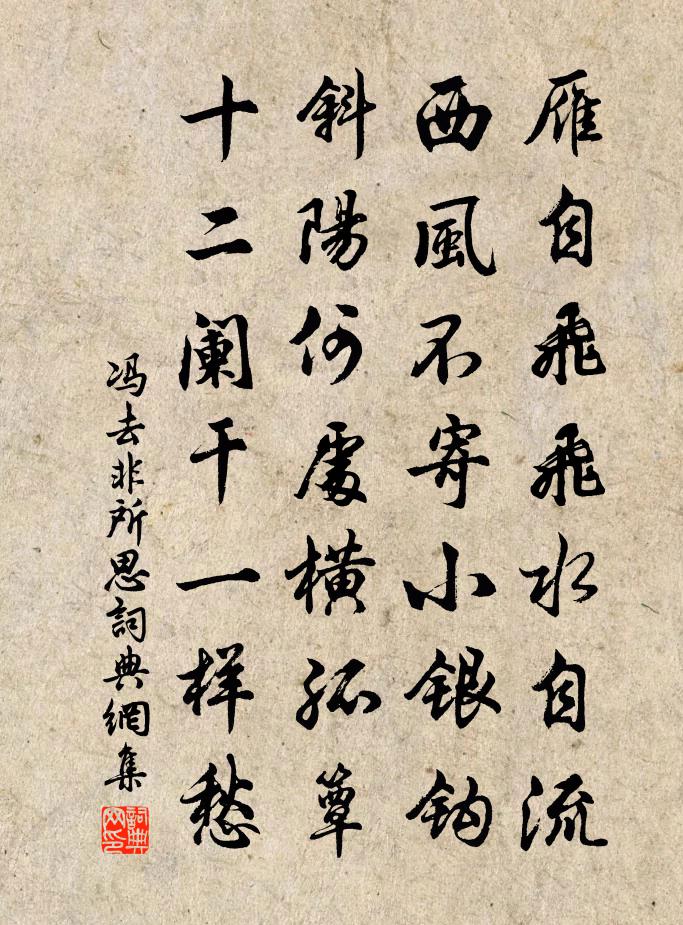 雁自飛飛水自流
西風不寄小銀鈎
斜陽何處橫孤簟
十二阑干一样愁
冯去非所思詞典網集
詞典网印